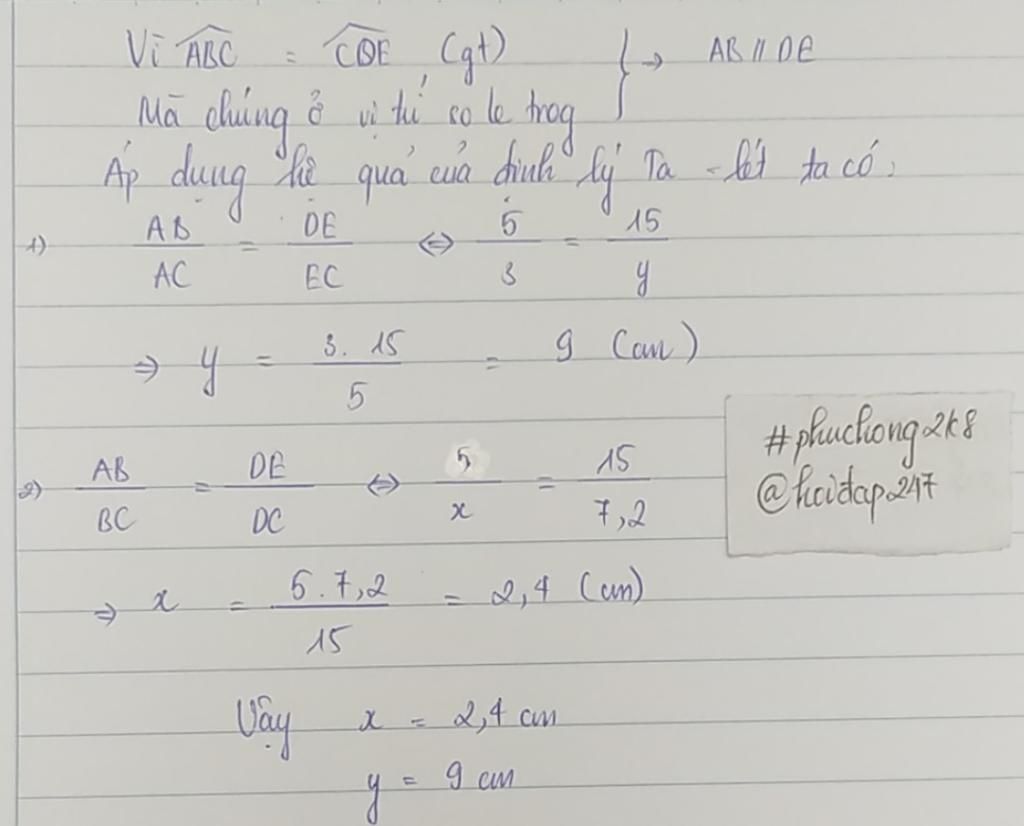 Vì ABC = CDE (gt) } → AB // DE
Mà chúng ở vị trí so le trog
Áp dụng hệ quả của định lý Ta - lét ta có:
1) AB/AC = DE/EC ⇔ 5/3 = 15/y
⇒ y = 3.15/5 = 9 (cm)
2) AB/BC = DE/DC ⇔ 5/x = 15/7,2
⇒ x = 5.7,2/15 = 2,4 (cm)
Vậy x = 2,4 cm
y = 9 cm
#phuchong2k8
@hoidap247